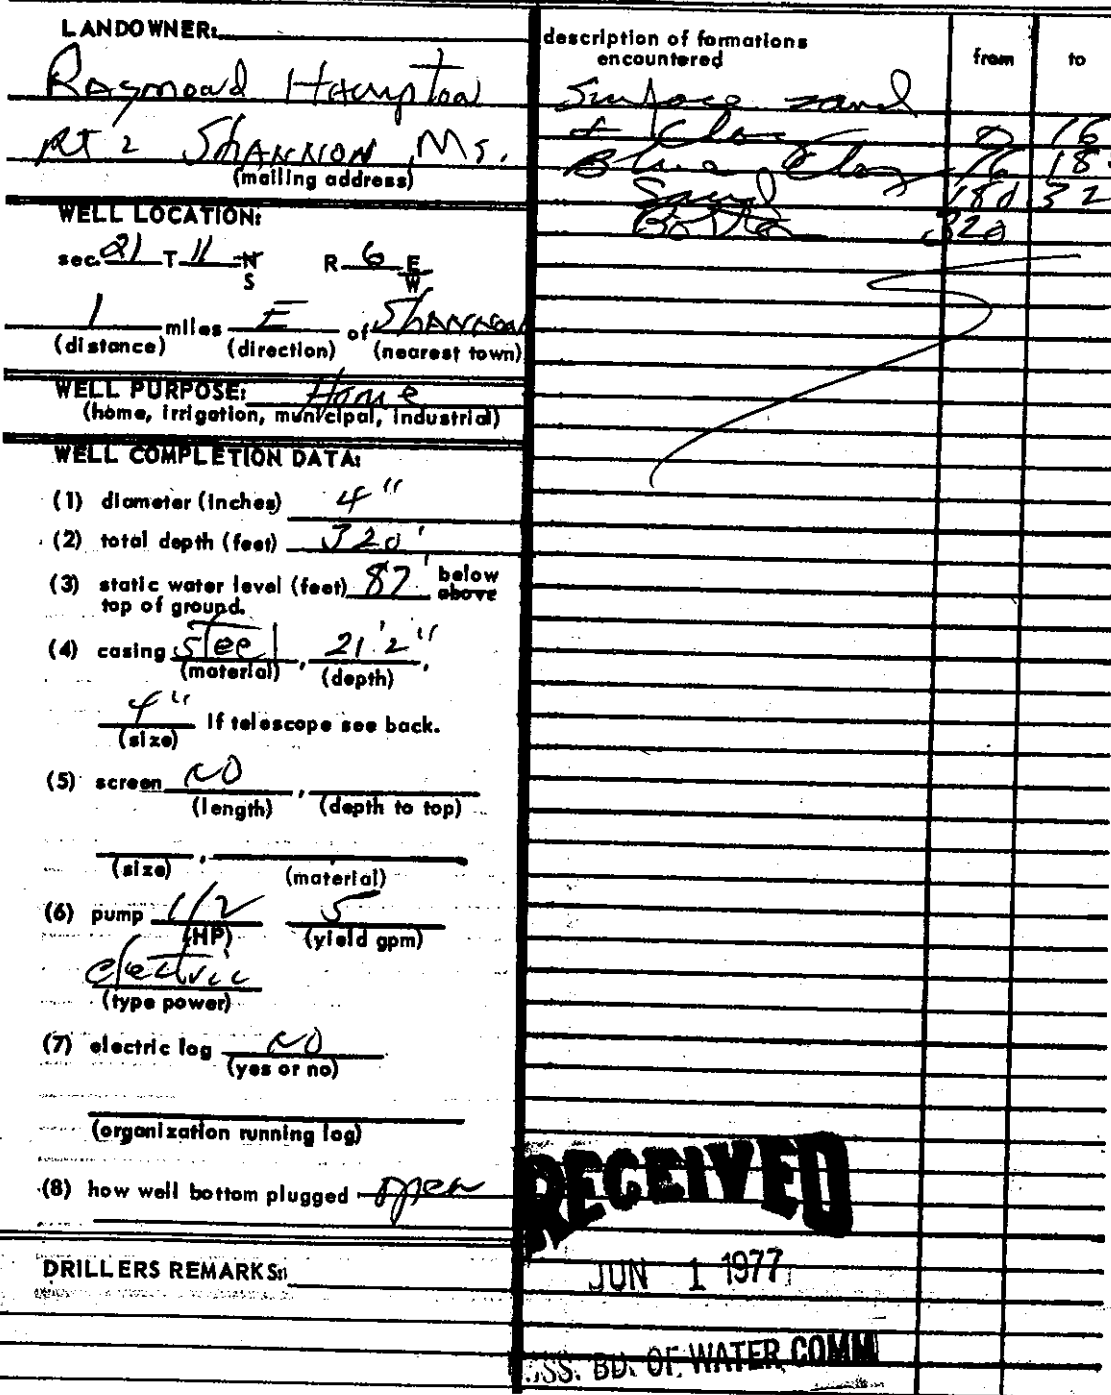 LANDOWNER:
Raymond Hampton
Rt 2 Shannon, Ms.
(mailing address)
WELL LOCATION:
sec. 21 T 11 N R 6 E
S W
1 miles E of Shannon
(distance) (direction) (nearest town)
WELL PURPOSE: Home
(home, irrigation, municipal, industrial)
WELL COMPLETION DATA:
(1) diameter (inches) 4"
(2) total depth (feet) 320'
(3) static water level (feet) 87' below
above
top of ground.
(4) casing steel, 21'2",
(material) (depth)
4" If telescope see back.
(size)
(5) screen NO,
(length) (depth to top)
,
(size) (material)
(6) pump 1/2 5
(HP) (yield gpm)
electric
(type power)
(7) electric log NO
(yes or no)
(organization running log)
(8) how well bottom plugged open
DRILLERS REMARKS:
description of formations
encountered from to
Surface sand
+ Clay 0 16
Blue Clay 16 18
Sand 180 32
Bottom 320
RECEIVED
JUN 1 1977
SS. BD. OF WATER COMM